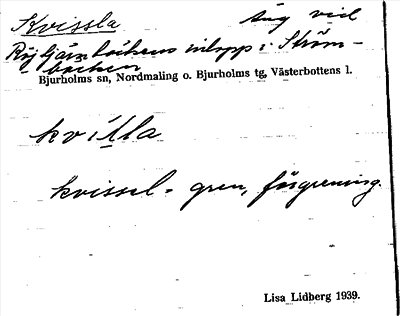 Kvissla äng vid
Röjtjärnbäckens inlopp i Ström-
bäcken
Bjurholms sn, Nordmaling o. Bjurholms tg, Västerbottens l.
kvissel- gren, förgrening.
Lisa Lidberg 1939.